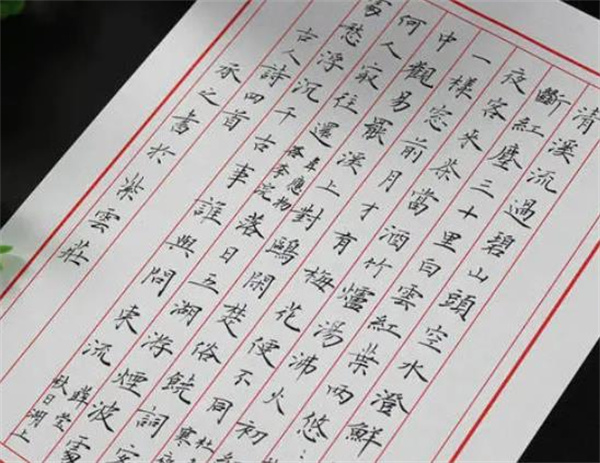 清溪流過碧山頭空水澄鮮
斷紅塵三十里白雲紅葉兩悠
夜客來茶當酒竹爐湯沸火初
一樣窓前月才有梅花便不同
中觀易罷溪上對鷗閑楚俗饒詞客
何人㝡往還
韋應物
答李浣
落日五湖游煙波處
愁浮沉千古事誰與問東流
薛瑩
秋日湖上
古人詩四首
承之書於紫雲莊